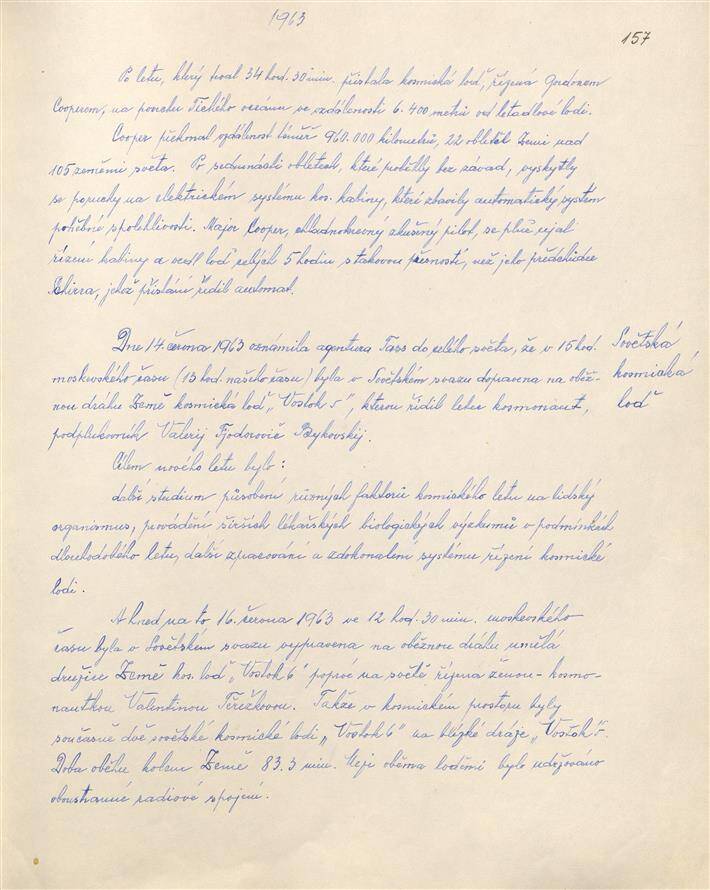 1963
157
Po letu, který trval 34 hod. 30 min. přistála kosmická loď, řízená Gordonem
Cooperem, na povrchu Tichého oceánu ve vzdálenosti 6.400 metrů od letadlové lodi.
Cooper překonal vzdálenost téměř 960.000 kilometrů, 22 obletěl Zemi nad
105 zeměmi světa. Po sedmnácti obletech, které proběhly bez závad, vyskytly
se poruchy na elektrickém systému kos. kabiny, které zbavily automatický systém
potřebné spolehlivosti. Major Cooper, chladnokrevný zkušený pilot, se plně ujal
řízení kabiny a vedl loď celých 5 hodin s takovou přesností, než jeho předchůdce
Schirra, jehož přistání řídil automat.
Dne 14. června 1963 oznámila agentura Tass do celého světa, že v 15 hod.
Sovětská
moskevského času (13 hod. našeho času) byla v Sovětském svazu dopravena na oběž-
kosmická
nou dráhu Země kosmická loď „Vostok 5", kterou řídil letec kosmonaut,
loď
podplukovník Valerij Fjodorovič Bykovskij.
Cílem nového letu bylo:
další studium působení různých faktorů kosmického letu na lidský
organismus, provádění širších lékařských biologických výzkumů v podmínkách
dlouhodobého letu, další zpracování a zdokonalení systému řízení kosmické
lodi.
A hned na to 16. června 1963 ve 12 hod. 30 min. moskevského
času byla v Sovětském svazu vypravena na oběžnou dráhu umělá
družice Země kos. loď „Vostok 6" poprvé na světě řízena ženou - kosmo-
nautkou Valentinou Těreškovou. Takže v kosmickém prostoru byly
současně dvě sovětské kosmické lodi „Vostok 6" na blízké dráze „Vostok 5".
Doba oběhu kolem Země 83.3 min. Mezi oběma loděmi bylo udržováno
oboustranné radiové spojení.